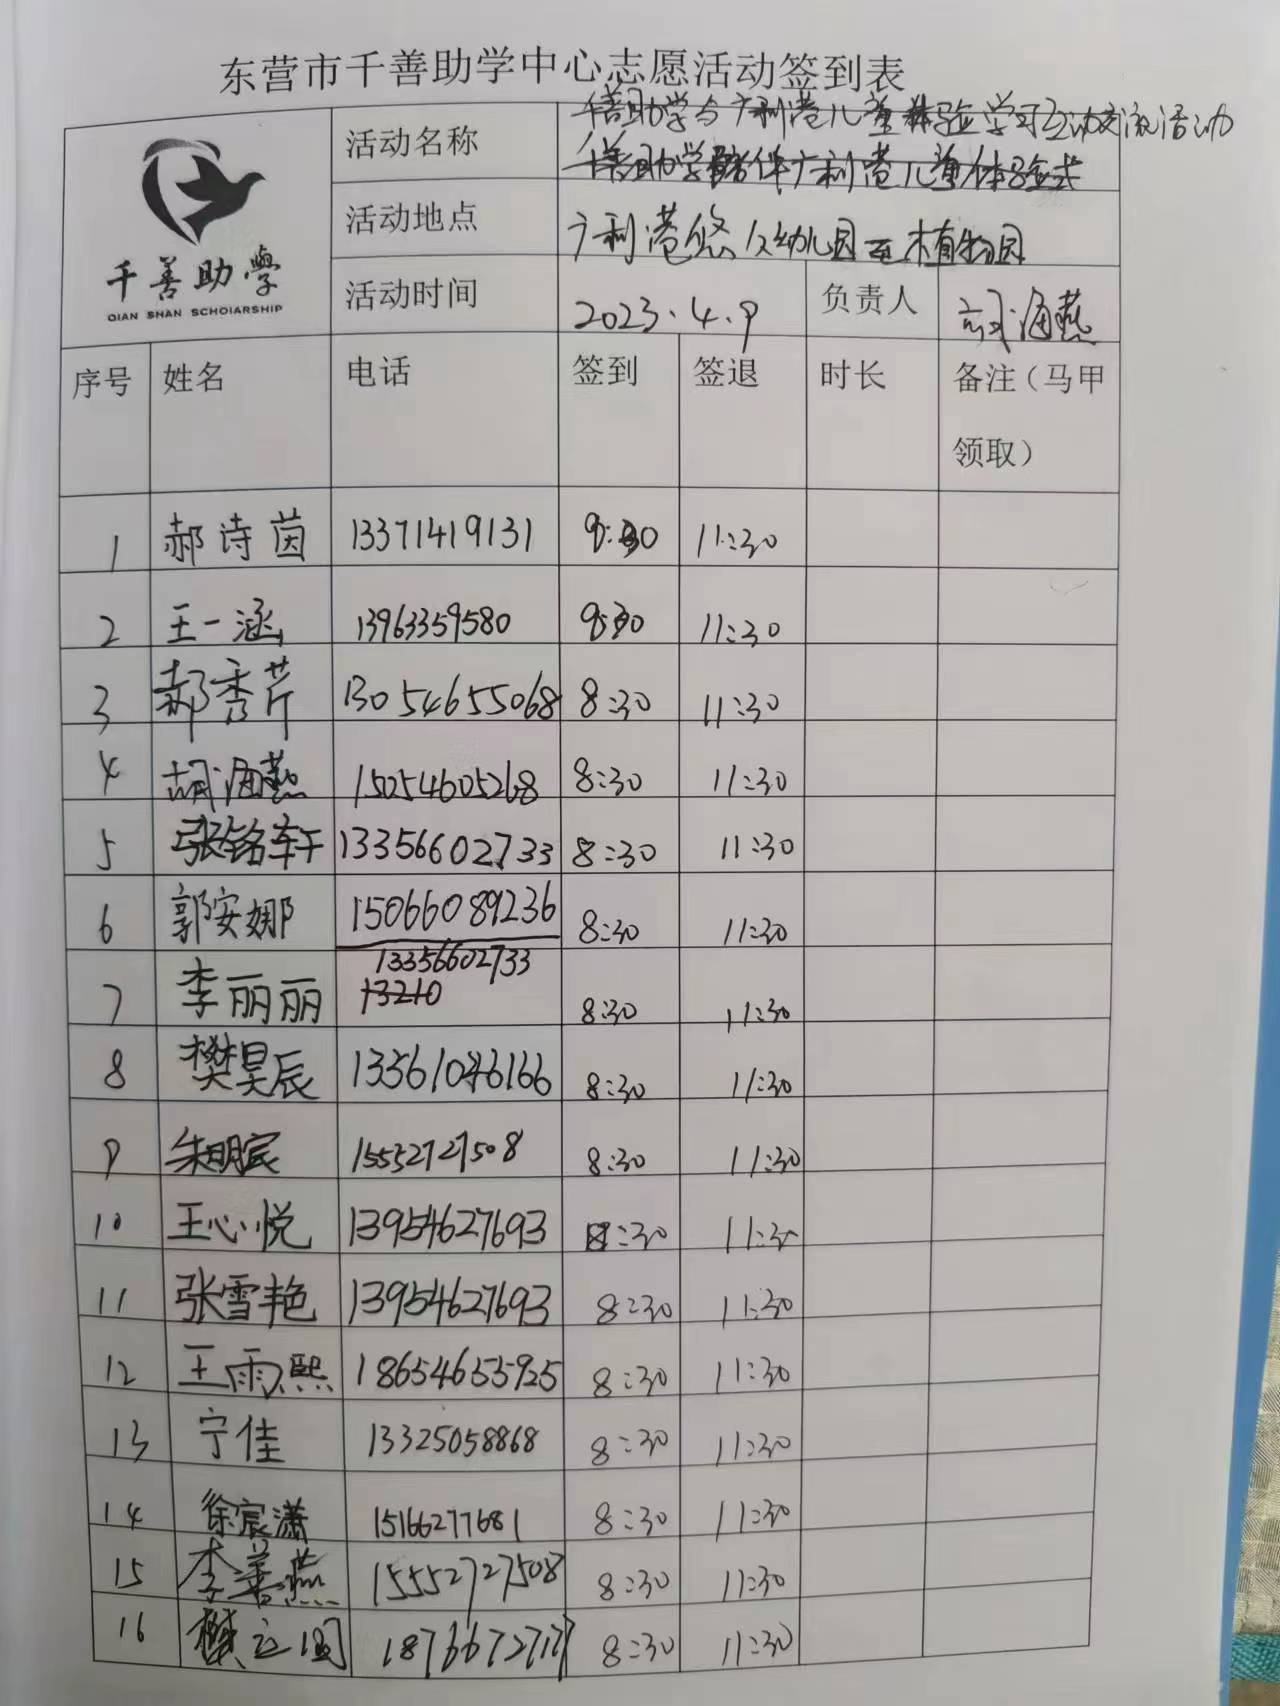 东营市千善助学中心志愿活动签到表
千善助学
QIAN SHAN SCHOlARSHIP
活动名称 千善助学与广利港儿童体验学习互动交流活动
千善助学陪伴广利港儿童体验式
活动地点 广利港悠久幼儿园至植物园
活动时间 2023.4.9 负责人 胡海燕
序号 姓名 电话 签到 签退 时长 备注（马甲
领取）
1 郝诗茵 13371419131 9:30 11:30
2 王一涵 13963359580 9:30 11:30
3 郝秀芹 13054655068 8:30 11:30
4 胡海燕 15054605268 8:30 11:30
5 张铭轩 13356602733 8:30 11:30
6 郭安娜 15066089236 8:30 11:30
7 李丽丽 13356602733 8:30 11:30
13210
8 樊昊辰 13361046166 8:30 11:30
9 朱明宸 15552727508 8:30 11:30
10 王心悦 13954627693 8:30 11:30
11 张雪艳 13954627693 8:30 11:30
12 王雨熙 18654655925 8:30 11:30
13 宁佳 13325058868 8:30 11:30
14 徐宸潇 15166277681 8:30 11:30
15 李善燕 15552727508 8:30 11:30
16 樊立国 8:30 11:30